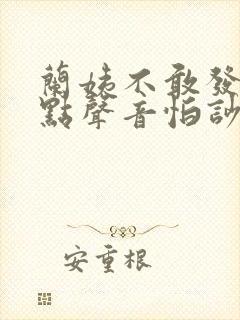 蘭姨不敢發
點聲音怕訬
安重根